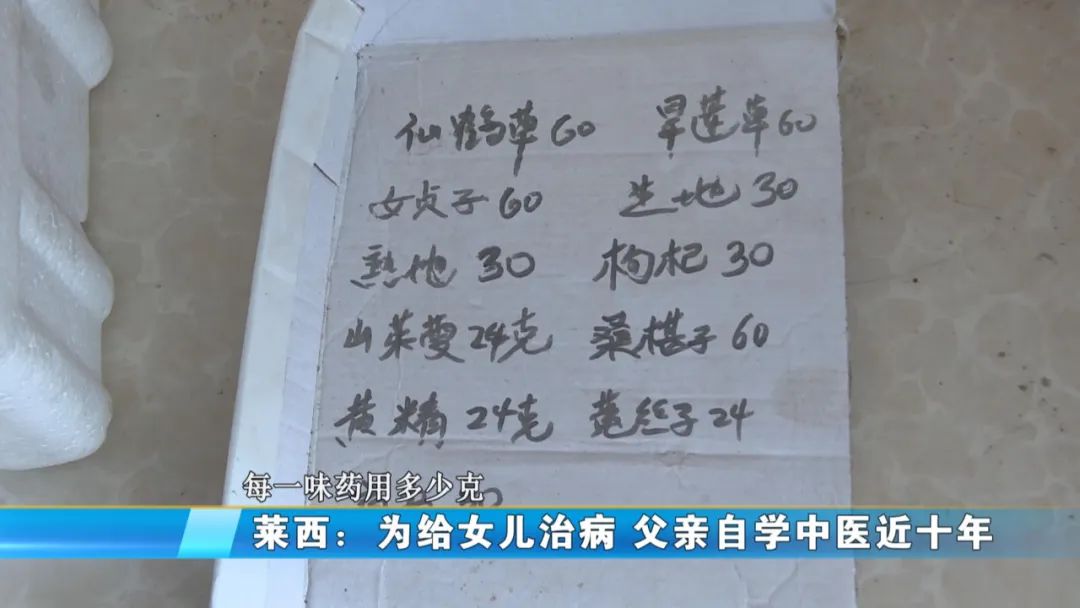 仙鹤草60 旱莲草60
女贞子60 生地30
熟地30 枸杞30
山茱萸24克 桑椹子60
黄精24克 菟丝子24
每一味药用多少克
莱西：为给女儿治病 父亲自学中医近十年